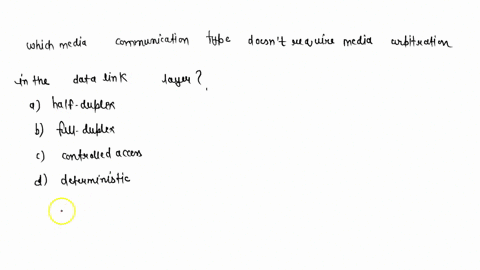 which media communication type doesn't require media arbitration
in the data link layer?
a) half-duplex
b) full-duplex
c) controlled access
d) deterministic